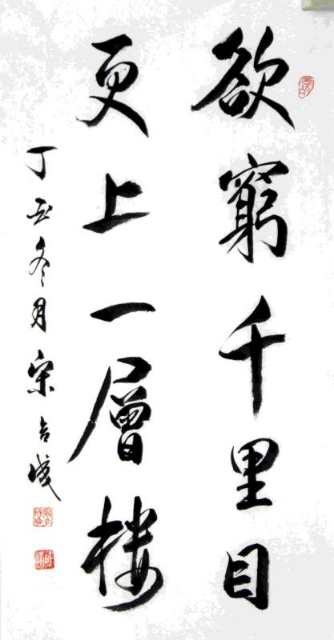 欲窮千里目
更上一層楼
丁亥冬月宋吉成